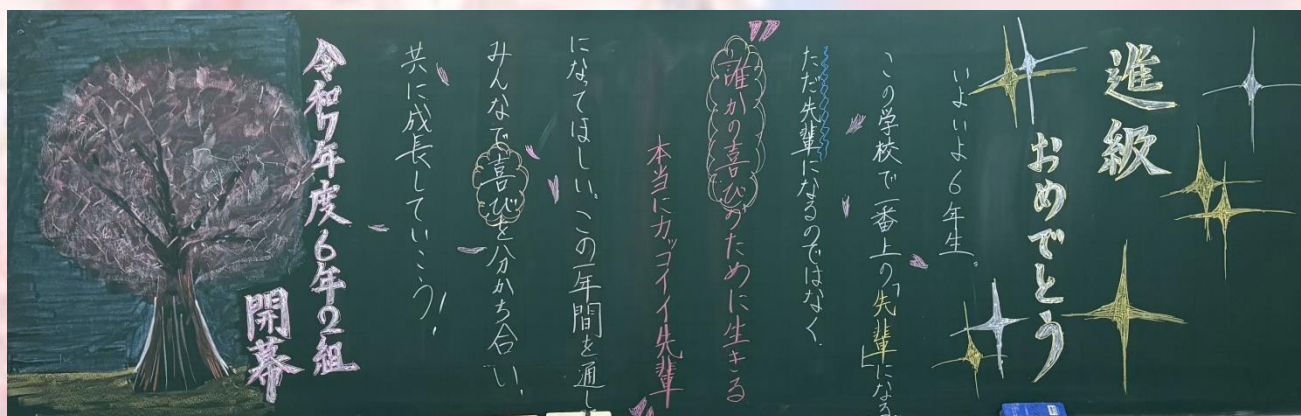 進級
おめでとう
いよいよ6年生。
この学校で一番上の「先輩」になる。
ただ先輩になるのではなく、
誰かの喜びのために生きる
本当にカッコイイ先輩
になってほしい。この一年間を通し
みんなで喜びを分かち合い、
共に成長していこう!
令和7年度6年2組
開幕